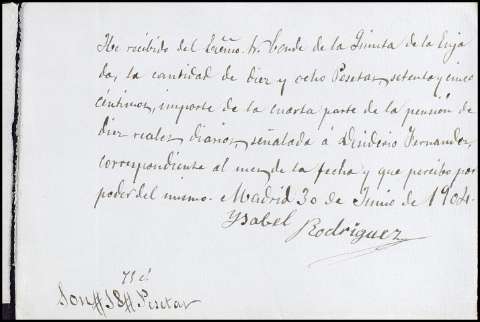 He recibido del Excmo. Sr. Conde de la Quinta de la Enja
da, la cantidad de diez y ocho Pesetas, setenta y cinco
céntimos, importe de la cuarta parte de la pensión de
diez reales diarios, señalada á Desiderio Fernandez,
correspondiente al mes de la fecha y que percibo por
poder del mismo. Madrid 30 de Junio de 1904.
Ysabel Rodriguez
75 c.
Son #18# Pesetas